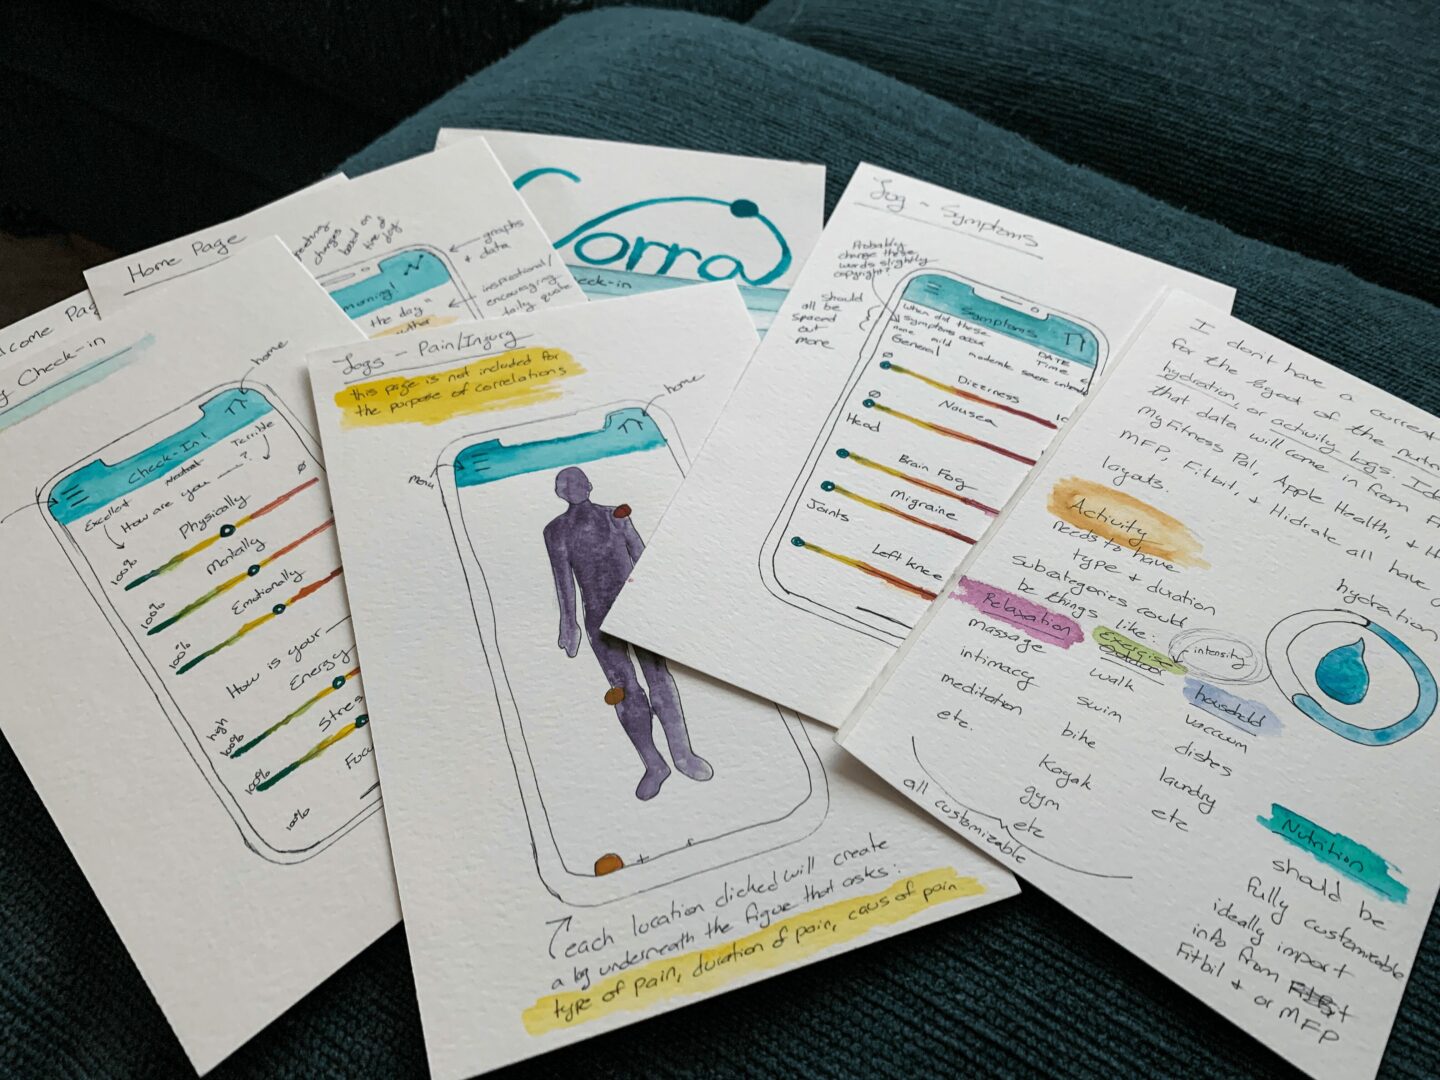 Home Page
changes
based on
time of
day
graphs
+ data
inspirational/
encouraging
daily quote
morning!
the day"
Corra
check-in
Check-in
home
Check-In!
Excellent
Neutral
Terrible
How are you ———?
Physically
100%
Mentally
100%
Emotionally
100%
How is your —
Energy
high
100%
Stres
100%
Focu
100%
Logs - Pain/Injury
this page is not included for
the purpose of correlations
home
menu
each location clicked will create
a log underneath the figue that asks:
type of pain, duration of pain, caus of pain
Log ~ Symptoms
Probably
change these
words slightly
copyright?
Should
all be
spaced
out
more
Symptoms
When did these
symptoms occur
DATE
Time
none mild moderate severe
General
Dizziness
Nausea
Head
Brain Fog
Migraine
Joints
Left Knee
I don't have a current
for the layout of the nutri
hydration, or activity logs. Ide
that data will come in from Fi
MyFitness Pal, Apple Health, + H
MFP, Fitbit, + Hidrate all have
layouts.
Activity
needs to have
type + duration
Subcategories could
be things like:
Relaxation
massage
intimacy
meditation
etc.
Exercise
intensity
walk
swim
bike
Kayak
gym
etc
household
vaccum
dishes
laundry
etc
all customizable
hydration
Nutrition
should be
fully customizable
ideally import
info from
Fitbit + or MFP